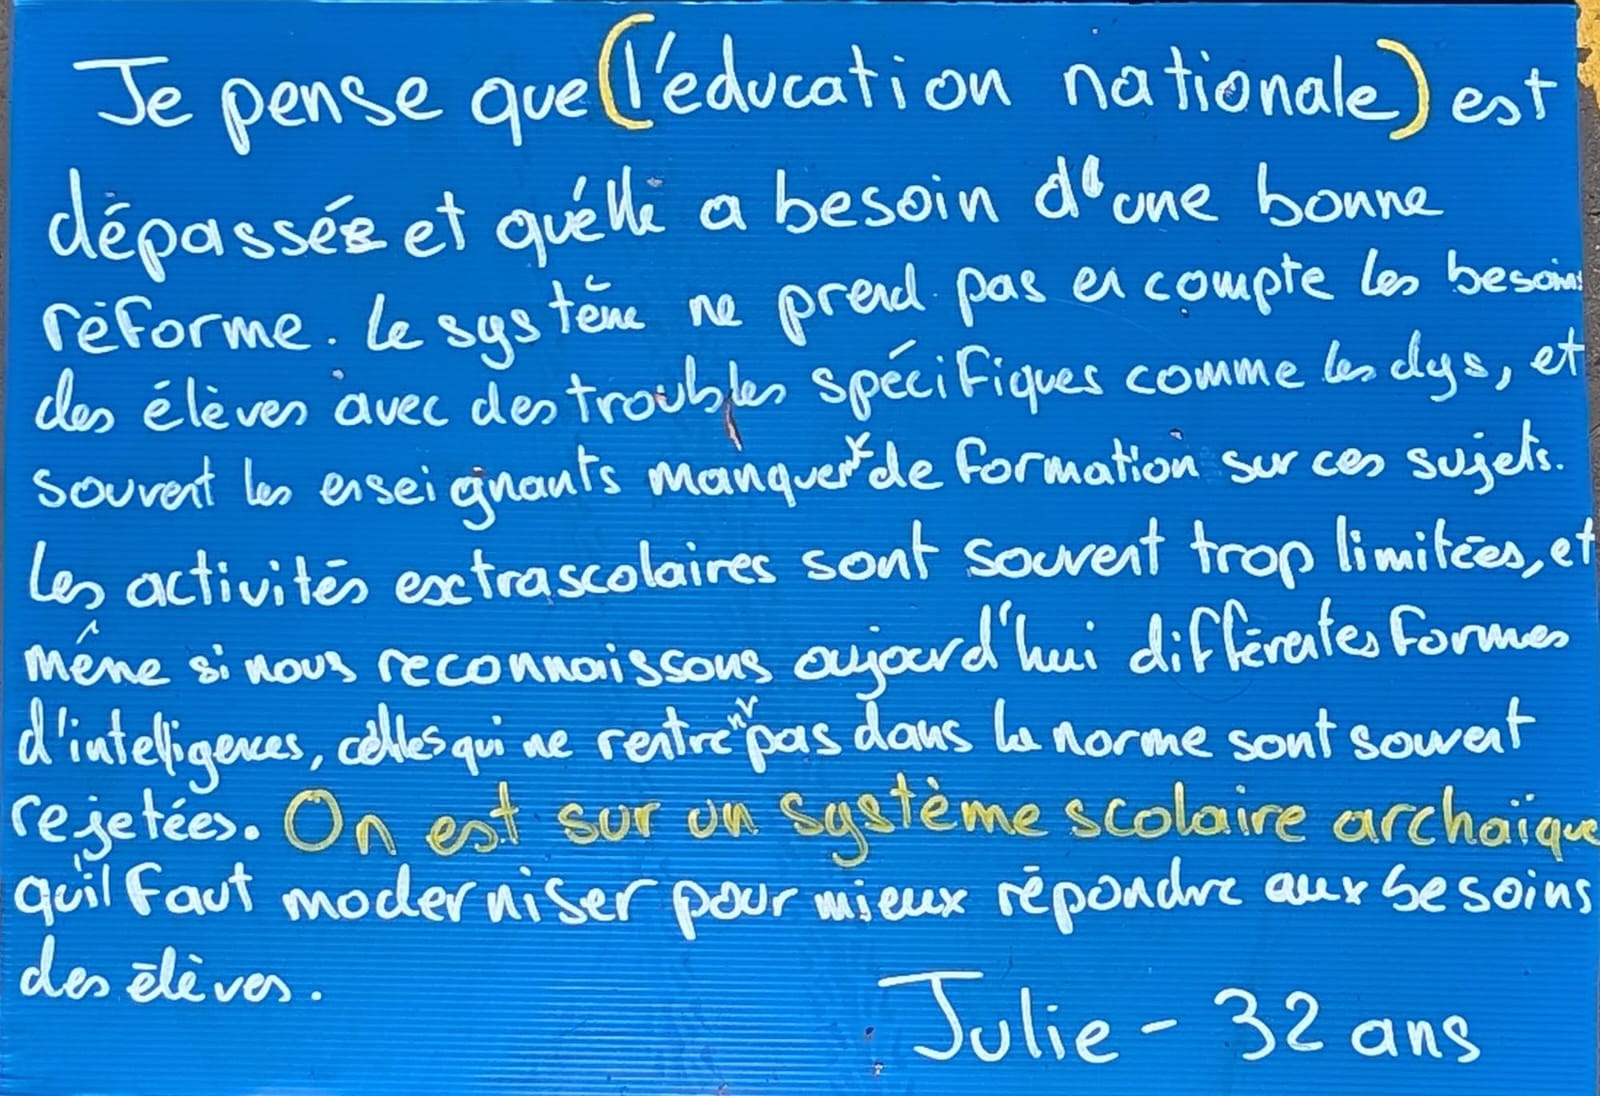 Je pense que (l'éducation nationale) est
dépassée et qu'elle a besoin d'une bonne
réforme. Le système ne prend pas en compte les besoins
des élèves avec des troubles spécifiques comme les dys, et
souvent les enseignants manquent de formation sur ces sujets.
Les activités extrascolaires sont souvent trop limitées, et
même si nous reconnaissons aujourd'hui différentes formes
d'intelligences, celles qui ne rentrent pas dans la norme sont souvent
rejetées. On est sur un système scolaire archaïque
qu'il faut moderniser pour mieux répondre aux besoins
des élèves.
Julie - 32 ans